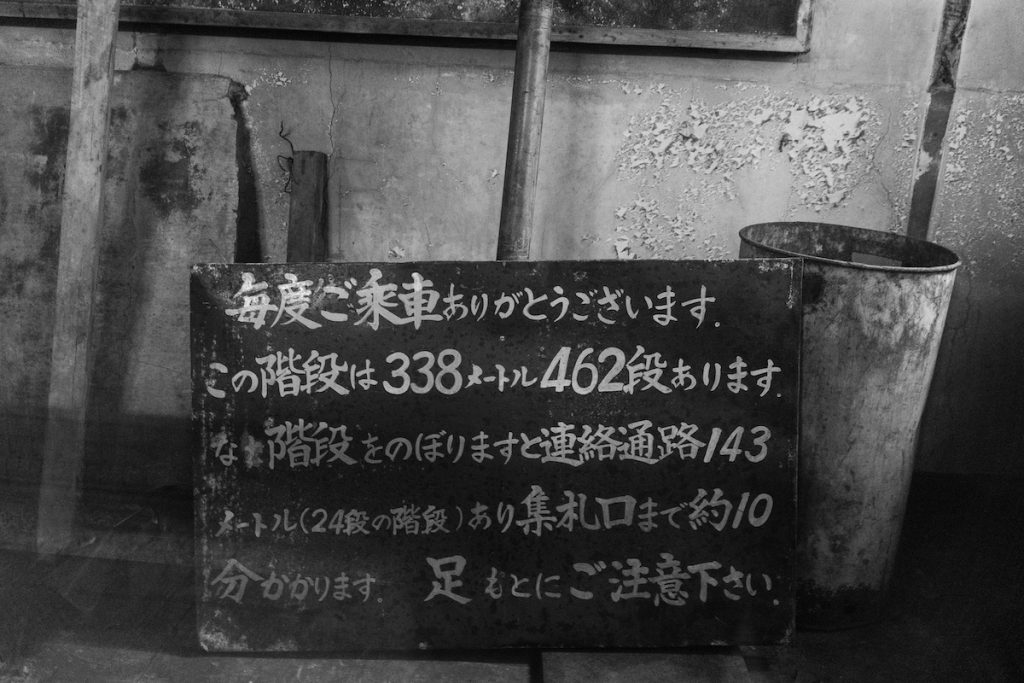 毎度ご乗車ありがとうございます.
この階段は338メートル462段あります.
なお階段をのぼりますと連絡通路143
メートル(24段の階段)あり集札口まで約10
分かかります。 足もとにご注意下さい.